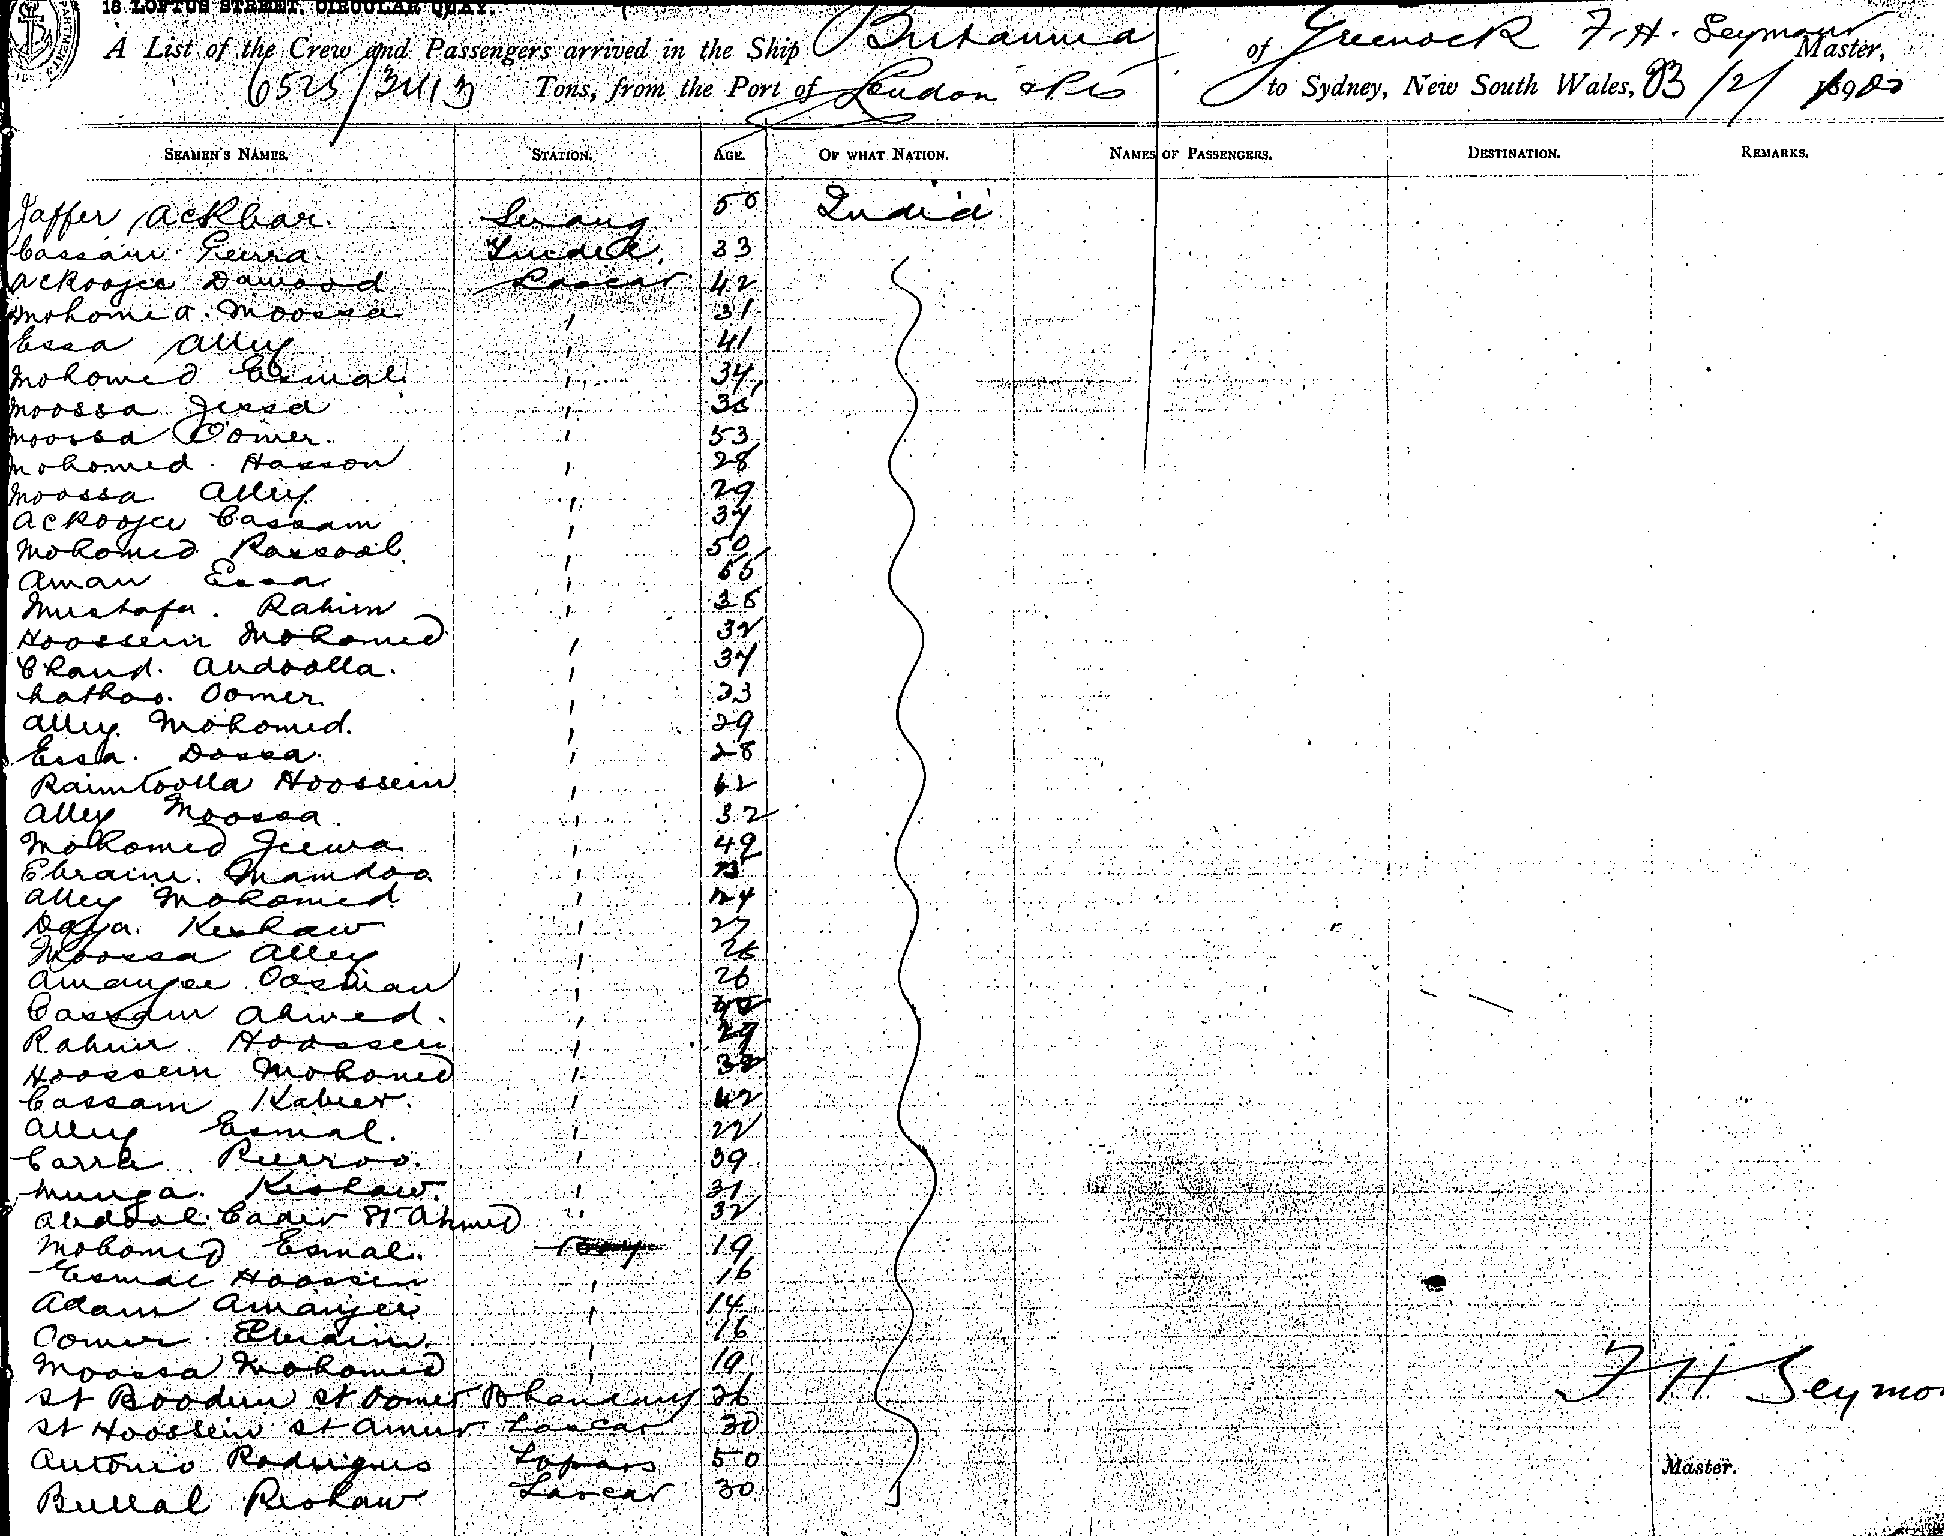 18 LOFTUS STREET, CIRCULAR QUAY.
A List of the Crew and Passengers arrived in the Ship Britannia of Greenock F. H. Seymour Master,
6525/3413 Tons, from the Port of London to Sydney, New South Wales,
SEAMEN'S NAMES. STATION. AGE. OF WHAT NATION. NAMES OF PASSENGERS. DESTINATION. REMARKS.
Jaffer Ackbar. Serang 50 India
Cassam 33
Ackoojee Dawood Lascar 42
Mohomed Moossa 31
Essa Alley 41
Mohomed Esmal 34
Moossa Jessa
Moossa Oomer. 53
Mohomed Hasson 28
Moossa Alley 29
Ackoojee Cassam 37
Mohomed Rossool 50
Aman Essa
Mustafa. Rahim
Hoossein Mohomed 32
Chand. Abdoolla. 37
Oomer 23
Alley Mohomed. 29
Essa. Dossa. 28
Raimtoolla Hoossein 42
Alley Moossa. 32
Mohomed Jeewa 49
Ebraim. Mamdoo
Alley Mohomed 24
Daya. Keshaw 27
Moossa Alley 26
Amanjee Oosman 26
Cassam Ahmed.
Rahim Hoossein 29
Hoossein Mohomed 32
Cassam Kabeer. 42
Alley Esmal. 22
39
Munga. Keshaw. 31
Abdool Cader St Ahmed " 32
Mohomed Esmal. Boy 19
Esmal Hoossein 16
Adam Amanjee 14
Oomer Ebraim. 16
Moossa Mohomed 19
F H Seymour
St Boodin St Oomer Bhandary 26
St Hoossein St Amur Lascar 30
Antonio Rodrigues Topass 50
Master.
Bullal Keshaw Lascar 30